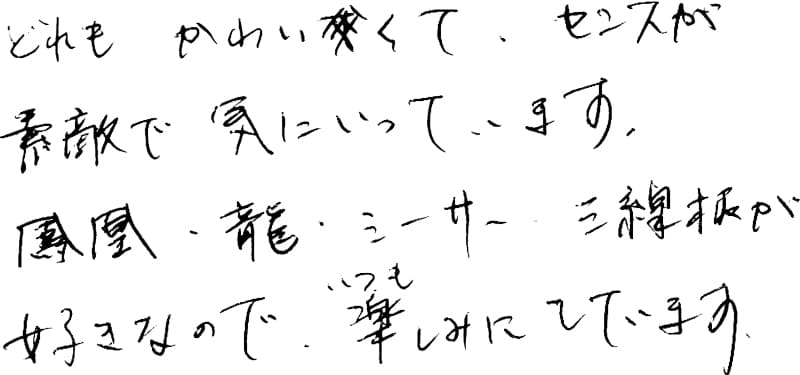 どれも かわいくて、センスが
素敵で 気にいっています。
鳳凰・龍・シーサー 三線柄が
好きなので、いつも楽しみにしています。